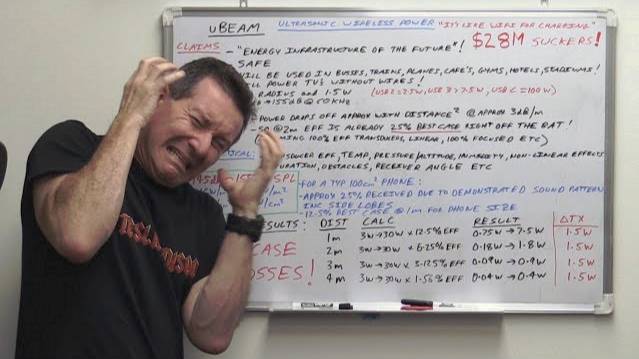 uBEAM ULTRASONIC WIRELESS POWER "IT'S LIKE WIFI FOR CHARGING"
CLAIMS - "ENERGY INFRASTRUCTURE OF THE FUTURE"! $28M SUCKERS!
SAFE
WILL BE USED IN BUSSES, TRAINS, PLANES, CAFE'S, GYMS, HOTELS, STADIUMS!
POWER TV'S WITHOUT WIRES!
RADIUS and 1.5W (USB 2=2.5W, USB 3=7.5W, USB C=100W)
155dB @ 60KHz
POWER DROPS OFF APPROX WITH DISTANCE² @ APPROX 3dB/m
- SO @ 2m EFF IS ALREADY 25% BEST CASE RIGHT OFF THE BAT!
100% EFF TRANSDUCERS, LINEAR, 100% FOCUSED ETC)
EFF, TEMP, PRESSURE/ALTITUDE, HUMIDITY, NON-LINEAR EFFECTS
OBSTACLES, RECEIVER ANGLE ETC
SPL
- FOR A TYP 100cm² PHONE:
- APPROX 25% RECEIVED DUE TO DEMONSTRATED SOUND PATTERN
INC SIDE LOBES
- 12.5% BEST CASE @ 1m FOR PHONE SIZE
DIST CALC RESULT ΔTX
1m 3W→30W x 12.5% EFF 0.75W → 7.5W 1.5W
2m 3W→30W x 6.25% EFF 0.18W → 1.8W 1.5W
3m 3W→30W x 3.125% EFF 0.09W → 0.9W 1.5W
4m 3W→30W x 1.56% EFF 0.04W → 0.4W 1.5W
CASE